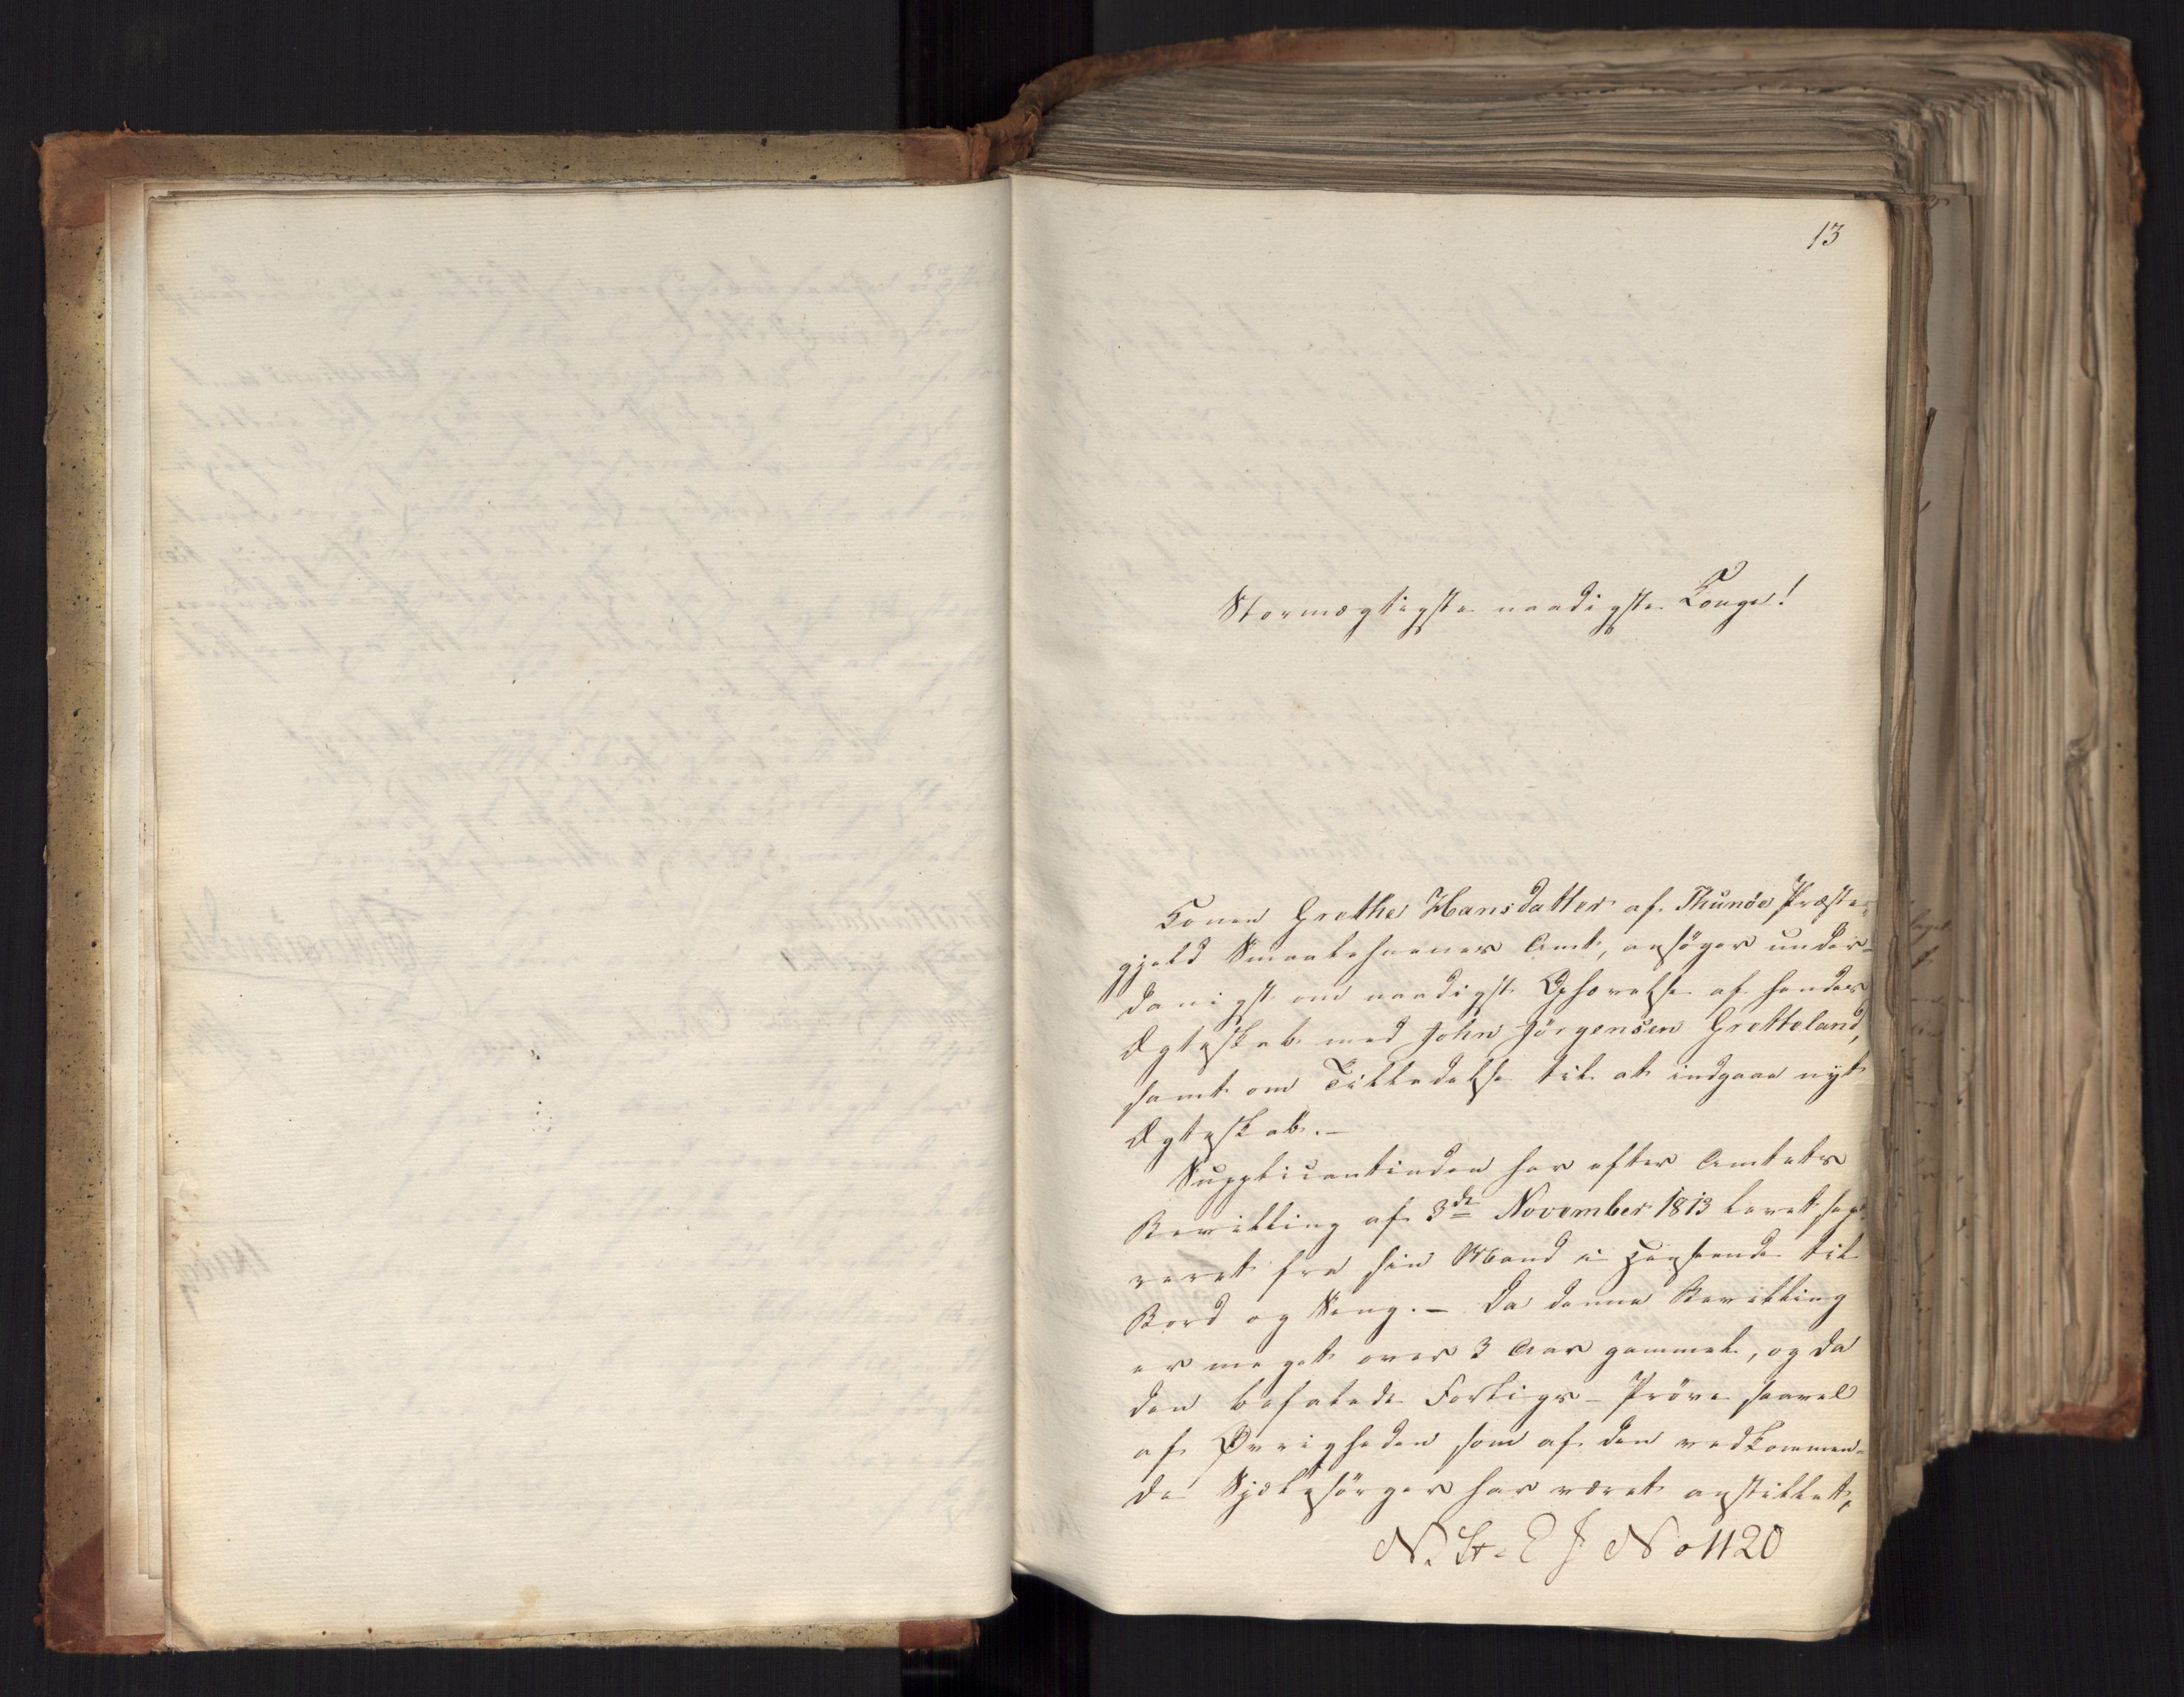 13
Stormægtigste naadigste Konge!
Konen Grethe Hansdatter af Thunöe Præste-
gjeld Smaalehnenes Amt, ansöger under-
danigst om naadigst Ophævelse af hendes
Ægteskab med John Jörgensen Grotteland,
samt om Tilladelse til at indgaae nyt
Ægteskab.-
Supplicantinden har efter Amtets
Bevilling af 3de November 1813 levet sepe-
reret fra sin Mand i Henseende til
Bord og Seng. - Da denne Bevilling
er meget over 3 Aar gammel, og da
den befalede Forligs-Pröve saavel
af Øvrigheden som af den vedkommen-
de Sjælesörger har været anstillet,
N. St. E J No 1120